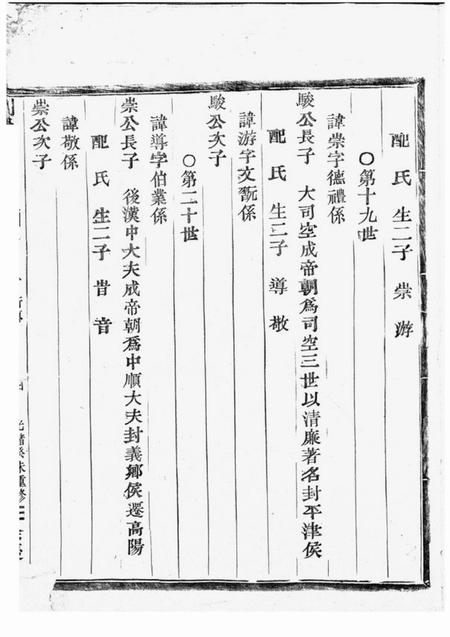 配氏 生二子 崇 游
○第十九世
諱崇字德禮係
駿公長子 大司空成帝朝爲司空三世以清廉著名封平津侯
配氏 生二子 導 敬
諱游字文翫係
駿公次子
○第二十世
諱導字伯業係
崇公長子 後漢中大夫成帝朝爲中順大夫封義鄉侯遷高陽
配氏 生二子 昔 音
諱敬係
崇公次子
光緒癸未重修